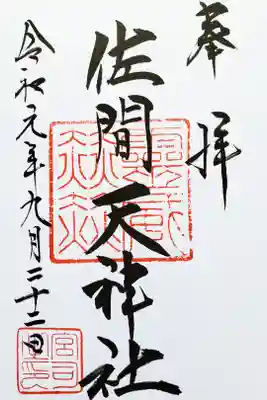 奉拝
佐間天神社
令和元年九月二十二日